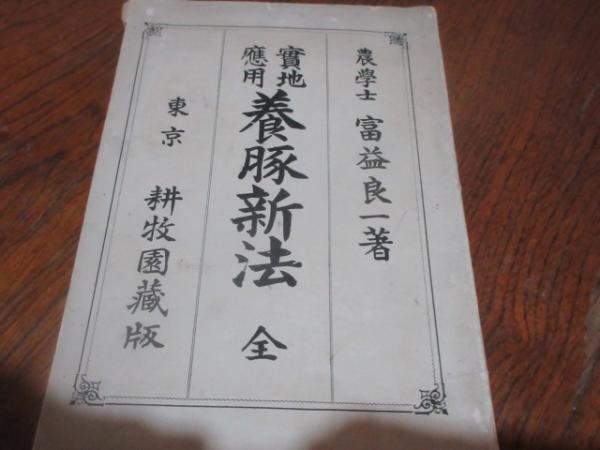 農學士 富益良一著
實地
應用
養豚新法 全
東京 耕牧園藏版